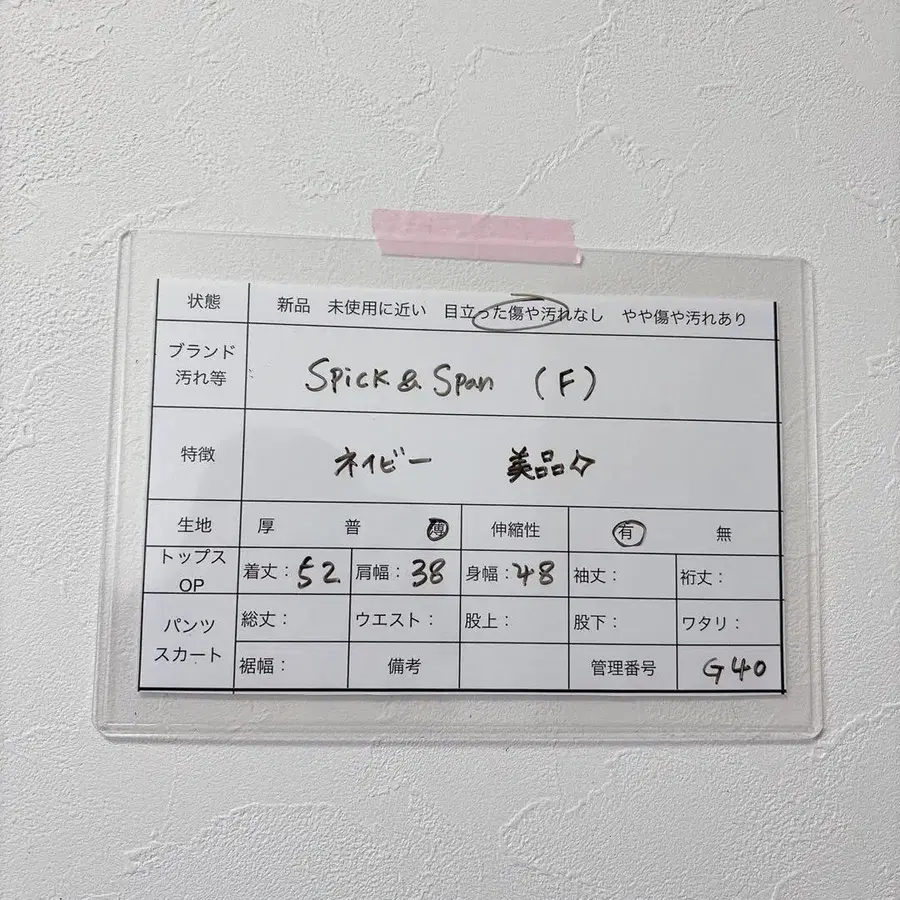 状態 新品 未使用に近い 目立った傷や汚れなし やや傷や汚れあり
ブランド
汚れ等 Spick & Span (F)
特徴 ネイビー 美品☆
生地 厚 普 薄 伸縮性 有 無
トップス
OP 着丈：52 肩幅：38 身幅：48 袖丈： 裄丈：
パンツ
スカート 総丈： ウエスト： 股上： 股下： ワタリ：
裾幅： 備考 管理番号 G40